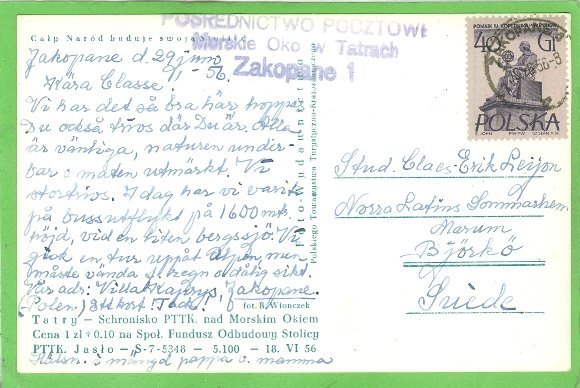 Cały Naród buduje swoją Stolicę
POŚREDNICTWO POCZTOWE
Morskie Oko w Tatrach
Zakopane 1
40 Gr
POMNIK M. KOPERNIKA, WARSZAWA
POLSKA
ZAKOPANE
Zakopane d 29 juni
-56.
Kära Classe!
Vi har det så bra här, hoppas
Du också trivs där Du är. Alla
är vänliga, naturen under-
bar o maten utmärkt. Vi
stortrivs. I dag har vi varit
på bussutflykt på 1600 mtr.
höjd, vid en liten bergssjö. Vi
gick en tur uppåt Alpen, men
måste vända, regn o dålig sikt.
Vår adr: Villa Zakopane.
(Polen) Ett kort. Tack!
fot. R. Wionczek
Tatry – Schronisko PTTK. nad Morskim Okiem
Cena 1 zł + 0.10 na Społ. Fundusz Odbudowy Stolicy
PTTK. Jasło – S-7-5348 – 5.100 – 18. VI 56
i mängd pappa o. mamma
Polskiego Towarzystwa Turystyczno-Krajoznawczego
Stud. Claes-Erik Leijon
Norra Latins Sommarhem
Marum
Björkö
Suède